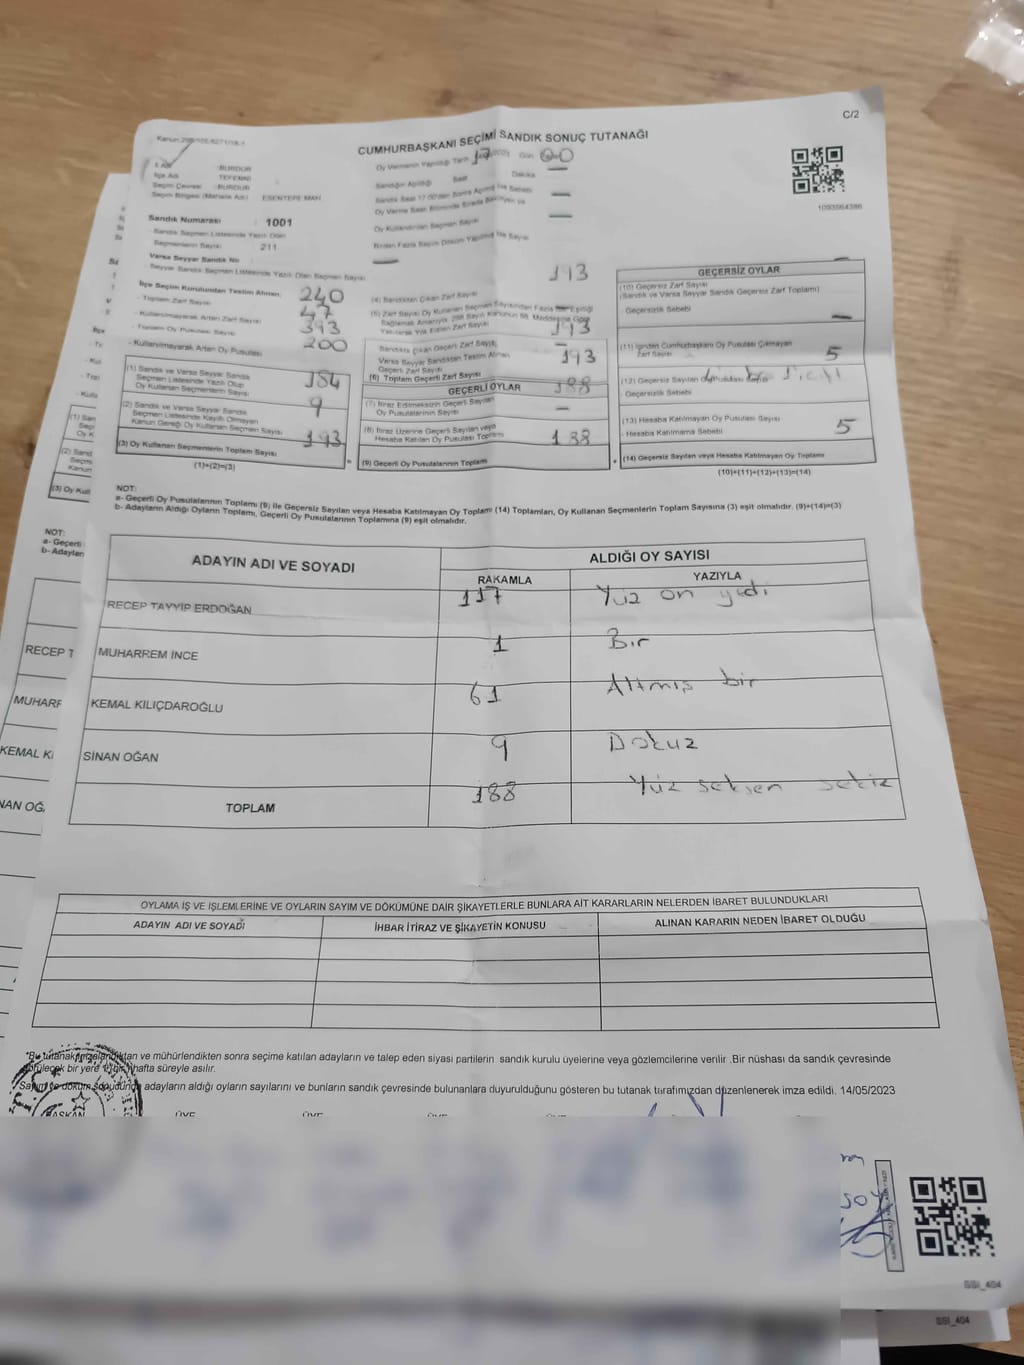 C/2
CUMHURBAŞKANI SEÇİMİ SANDIK SONUÇ TUTANAĞI
1093564386
İl Adı :BURDUR
İlçe Adı TEFENNİ
Seçim Çevresi :BURDUR
Seçim Bölgesi (Mahalle Adı) ESENTEPE MAH
Sandık Numarası 1001
- Sandık Seçmen Listesinde Yazılı Olan
Seçmenlerin Sayısı 211
Varsa Seyyar Sandık No
- Seyyar Sandık Seçmen Listesinde Yazılı Olan Seçmen Sayısı
İlçe Seçim Kurulundan Teslim Alınan,
- Toplam Zarf Sayısı 240
- Kullanılmayarak Artan Zarf Sayısı 47
- Toplam Oy Pusulası Sayısı 393
- Kullanılmayarak Artan Oy Pusulası 200
(1) Sandık ve Varsa Seyyar Sandık
Seçmen Listesinde Yazılı Olup
Oy Kullanan Seçmenlerin Sayısı 184
(2) Sandık ve Varsa Seyyar Sandık
Seçmen Listesinde Kayıtlı Olmayan
Kanun Gereği Oy Kullanan Seçmen Sayısı 9
(3) Oy Kullanan Seçmenlerin Toplam Sayısı 193
(1)+(2)=(3)
Oy Vermenin Yapıldığı Tarih
Gün
Sandığın Açıldığı Saat Dakika
Oy Kullandırılan Seçmen Sayısı
Birden Fazla Sayım Döküm Yapılmış İse Sayısı
(4) Sandıktan Çıkan Zarf Sayısı 193
193
Sandıkta Çıkan Geçerli Zarf Sayısı,
Varsa Seyyar Sandıktan Teslim Alınan
Geçerli Zarf Sayısı
(6) Toplam Geçerli Zarf Sayısı 193
GEÇERLİ OYLAR
188
(7) İtiraz Edilmeksizin Geçerli Sayılan
Oy Pusulalarının Sayısı
(8) İtiraz Üzerine Geçerli Sayılan veya
Hesaba Katılan Oy Pusulası Toplamı
(9) Geçerli Oy Pusulalarının Toplamı 188
GEÇERSİZ OYLAR
(10) Geçersiz Zarf Sayısı
(Sandık ve Varsa Seyyar Sandık Geçersiz Zarf Toplamı)
Geçersizlik Sebebi
(11) İçinden Cumhurbaşkanı Oy Pusulası Çıkmayan
Zarf Sayısı
5
(12) Geçersiz Sayılan Oy Pusulası Sayısı
Geçersizlik Sebebi
(13) Hesaba Katılmayan Oy Pusulası Sayısı
- Hesaba Katılmama Sebebi
5
(14) Geçersiz Sayılan veya Hesaba Katılmayan Oy Toplamı
(10)+(11)+(12)+(13)=(14)
NOT:
a- Geçerli Oy Pusulalarının Toplamı (9) ile Geçersiz Sayılan veya Hesaba Katılmayan Oy Toplamı (14) Toplamları, Oy Kullanan Seçmenlerin Toplam Sayısına (3) eşit olmalıdır. (9)+(14)=(3)
b- Adayların Aldığı Oyların Toplamı, Geçerli Oy Pusulalarının Toplamına (9) eşit olmalıdır.
ADAYIN ADI VE SOYADI
ALDIĞI OY SAYISI
RAKAMLA YAZIYLA
RECEP TAYYİP ERDOĞAN 117 Yüz on yedi
MUHARREM İNCE 1 Bir
KEMAL KILIÇDAROĞLU 61 Altmış bir
SİNAN OĞAN 9 Dokuz
TOPLAM 188 Yüz seksen sekiz
OYLAMA İŞ VE İŞLEMLERİNE VE OYLARIN SAYIM VE DÖKÜMÜNE DAİR ŞİKAYETLERLE BUNLARA AİT KARARLARIN NELERDEN İBARET BULUNDUKLARI
ADAYIN ADI VE SOYADI İHBAR İTİRAZ VE ŞİKAYETİN KONUSU ALINAN KARARIN NEDEN İBARET OLDUĞU
*Bu tutanak imzalandıktan ve mühürlendikten sonra seçime katılan adayların ve talep eden siyasi partilerin sandık kurulu üyelerine veya gözlemcilerine verilir .Bir nüshası da sandık çevresinde
görülecek bir yere bir hafta süreyle asılır.
Sayım ve döküm sonucunda adayların aldığı oyların sayılarını ve bunların sandık çevresinde bulunanlara duyurulduğunu gösteren bu tutanak tarafımızdan düzenlenerek imza edildi. 14/05/2023
BAŞKAN ÜYE ÜYE
SSI_404
SSI_404
NOT:
a- Geçerli
b- Adayları
RECEP T
MUHARF
KEMAL KI
NAN OĞ